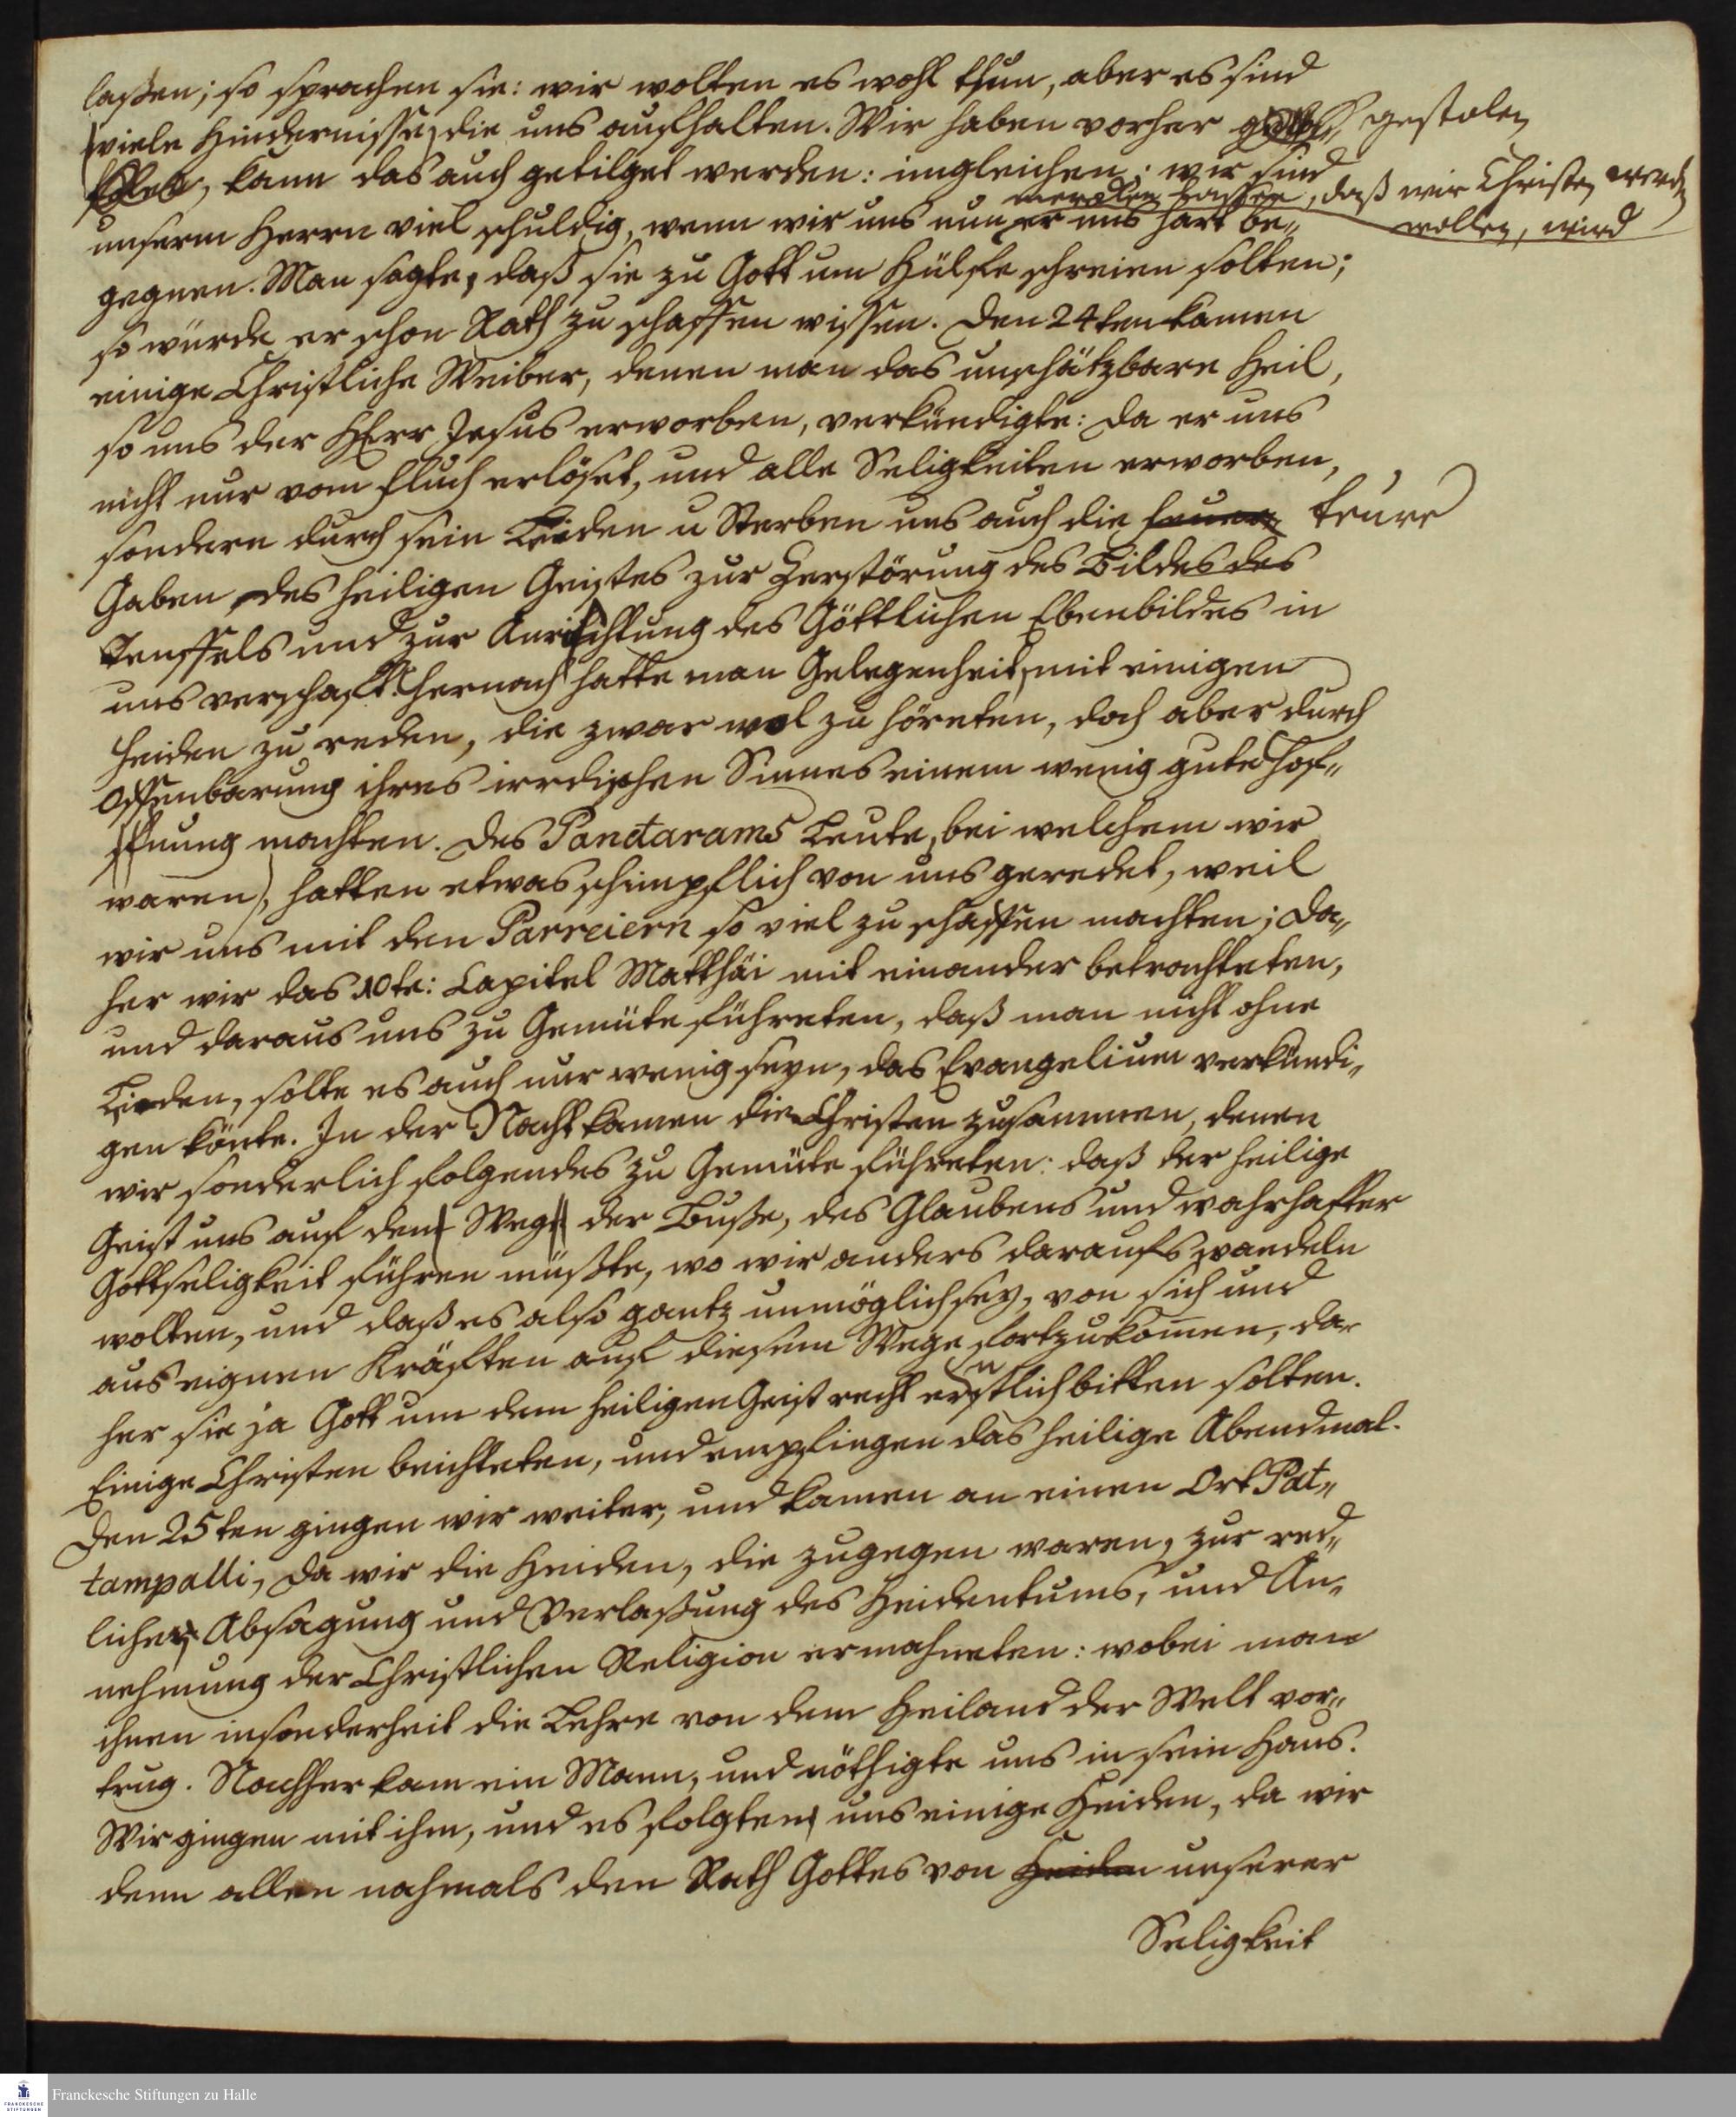 laßen; so sprachen sie: wir wolten es wohl thun, aber es sind
viele Hindernisse, die uns aufhalten. Wir haben vorher gestolen
kan das auch getilget werden: imgleichen: wir sind
unserm Herrn viel schuldig, wenn wir uns nun merken lassen, daß wir Christen werden
wollen, wird er uns hart be-
gegnen. Man sagte, daß sie zu Gott um Hülfe schreien solten;
so würde er schon Rath zu schaffen wissen. Den 24ten kamen
einige Christliche Weiber, denen man das unschätzbare Heil,
so uns der HErr Jesus erworben, verkündigte: da er uns
nicht nur vom Fluch erlöset, und alle Seligkeiten erworben,
sondern durch sein Leiden u Sterben uns auch die teure
Gaben des heiligen Geistes zur Zerstörung des Bildes des
Teuffels und zur Anrichtung des Göttlichen Ebenbildes in
uns verschaft. Hernach hatte man Gelegenheit, mit einigen
Heiden zu reden, die zwar wol zu höreten, doch aber durch
Offenbarung ihres irrdischen Sinnes einem wenig gute Hof-
fnung machten. Des Pandarams Leute, bei welchem wir
waren, hatten etwas schimpflich von uns geredet, weil
wir uns mit den Parreiern so viel zu schaffen machten; da-
her wir das 10te: Capitel Matthäi mit einander betrachteten,
und daraus uns zu Gemüte führeten, daß man nicht ohne
Leiden, solte es auch nur wenig seyn, das Evangelium verkündi-
gen könte. In der Nacht kamen die Christen zusammen, denen
wir sonderlich folgendes zu Gemüte führeten: daß der heilige
Geist uns auf den Weg der Buße, des Glaubens und wahrhafter
Gottseligkeit führen müßte, wo wir anders darauf wandeln
wolten, und daß es also gantz unmöglich sey, von sich und
aus eignen Kräften auf diesem Wege fortzukom̄en, da-
her sie ja Gott um dem heiligen Geist recht ernstlich bitten solten.
Einige Christen beichteten, und empfiengen das heilige Abendmal.
Den 25ten gingen wir weiter, und kamen an einen Ort Pat-
tampalli, da wir die Heiden, die zugegen waren, zur red-
lichen Absagung und Verlaßung des Heidentums, und An-
nehmung der Christlichen Religion ermahneten: wobei man
ihnen insonderheit die Lehre von dem Heiland der Welt vor-
trug. Nachher kam ein Mann, und nöthigte uns in sein Haus.
Wir gingen mit ihm, und es folgten uns einige Heiden, da wir
denn allen nahmals den Rath Gottes von Heiden unserer
Seligkeit
Franckesche Stiftungen zu Halle